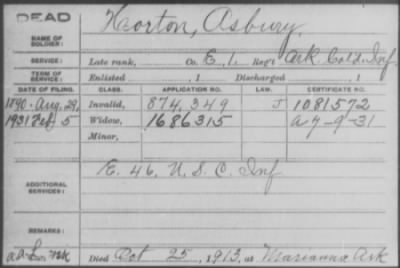 DEAD
NAME OF SOLDIER: Horton, Asbury.
SERVICE: Late rank, Co. E, 1. Reg't Ark. Cold. Inf.
TERM OF SERVICE: Enlisted , 1 Discharged , 1
DATE OF FILING. CLASS. APPLICATION NO. LAW. CERTIFICATE NO.
1890- Aug. 29, Invalid, 874,349 J 1081572
1931 Feb 5 Widow, 1686315 a 7-9-31
Minor,
ADDITIONAL SERVICES: E. 46, U.S.C. Inf
REMARKS:
Died Oct 25, 1913, at Marianna Ark